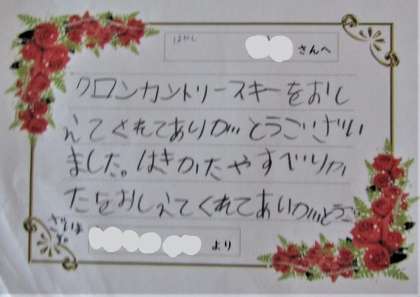 はやし
さんへ
クロンカントリースキーをおし
えてくれてありがとうござい
ました。はきかたやすべりか
たをおしえてくれてありがとうご
ざいま
より